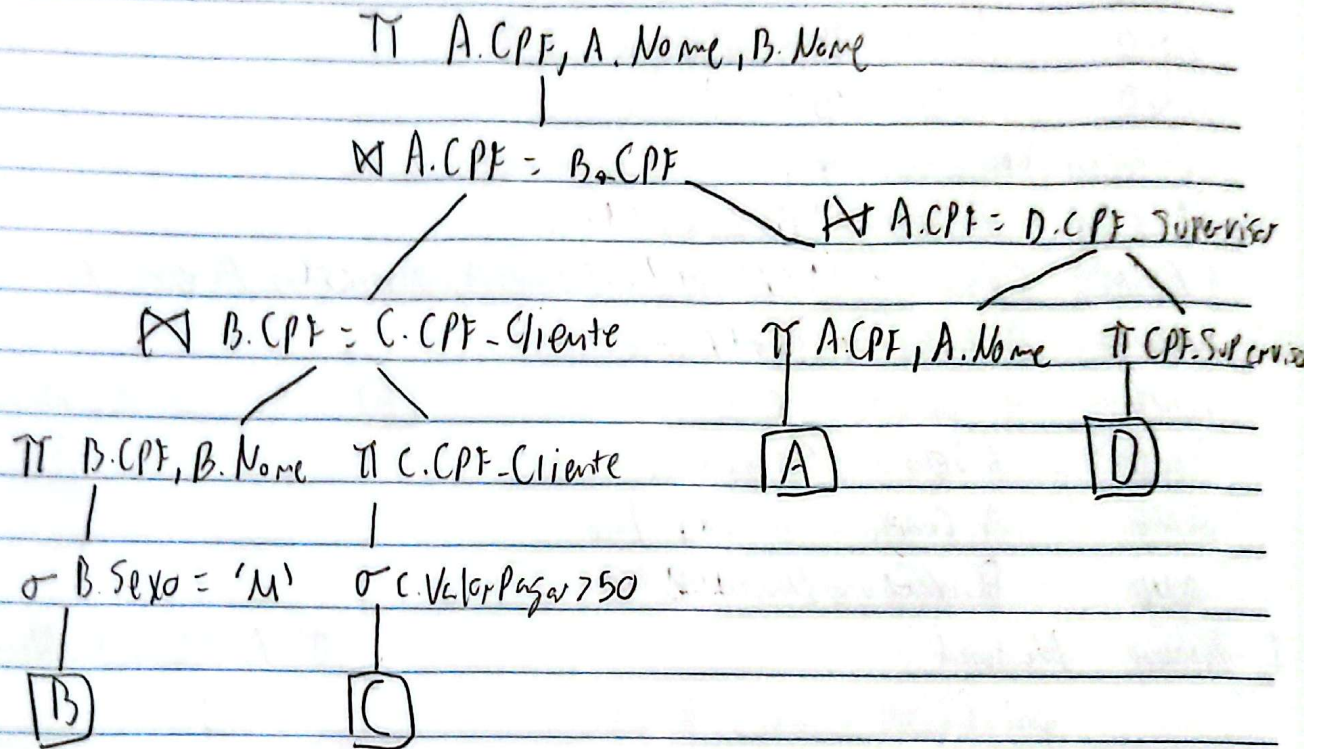 π A.CPF, A.Nome, B.Nome
⋈ A.CPF = B.CPF
⋈ A.CPF = D.CPF_Supervisor
⋈ B.CPF = C.CPF_Cliente
π A.CPF, A.Nome
π CPF_Supervisor
π B.CPF, B.Nome
π C.CPF_Cliente
A
D
σ B.Sexo = 'M'
σ C.ValorPagar > 50
B
C